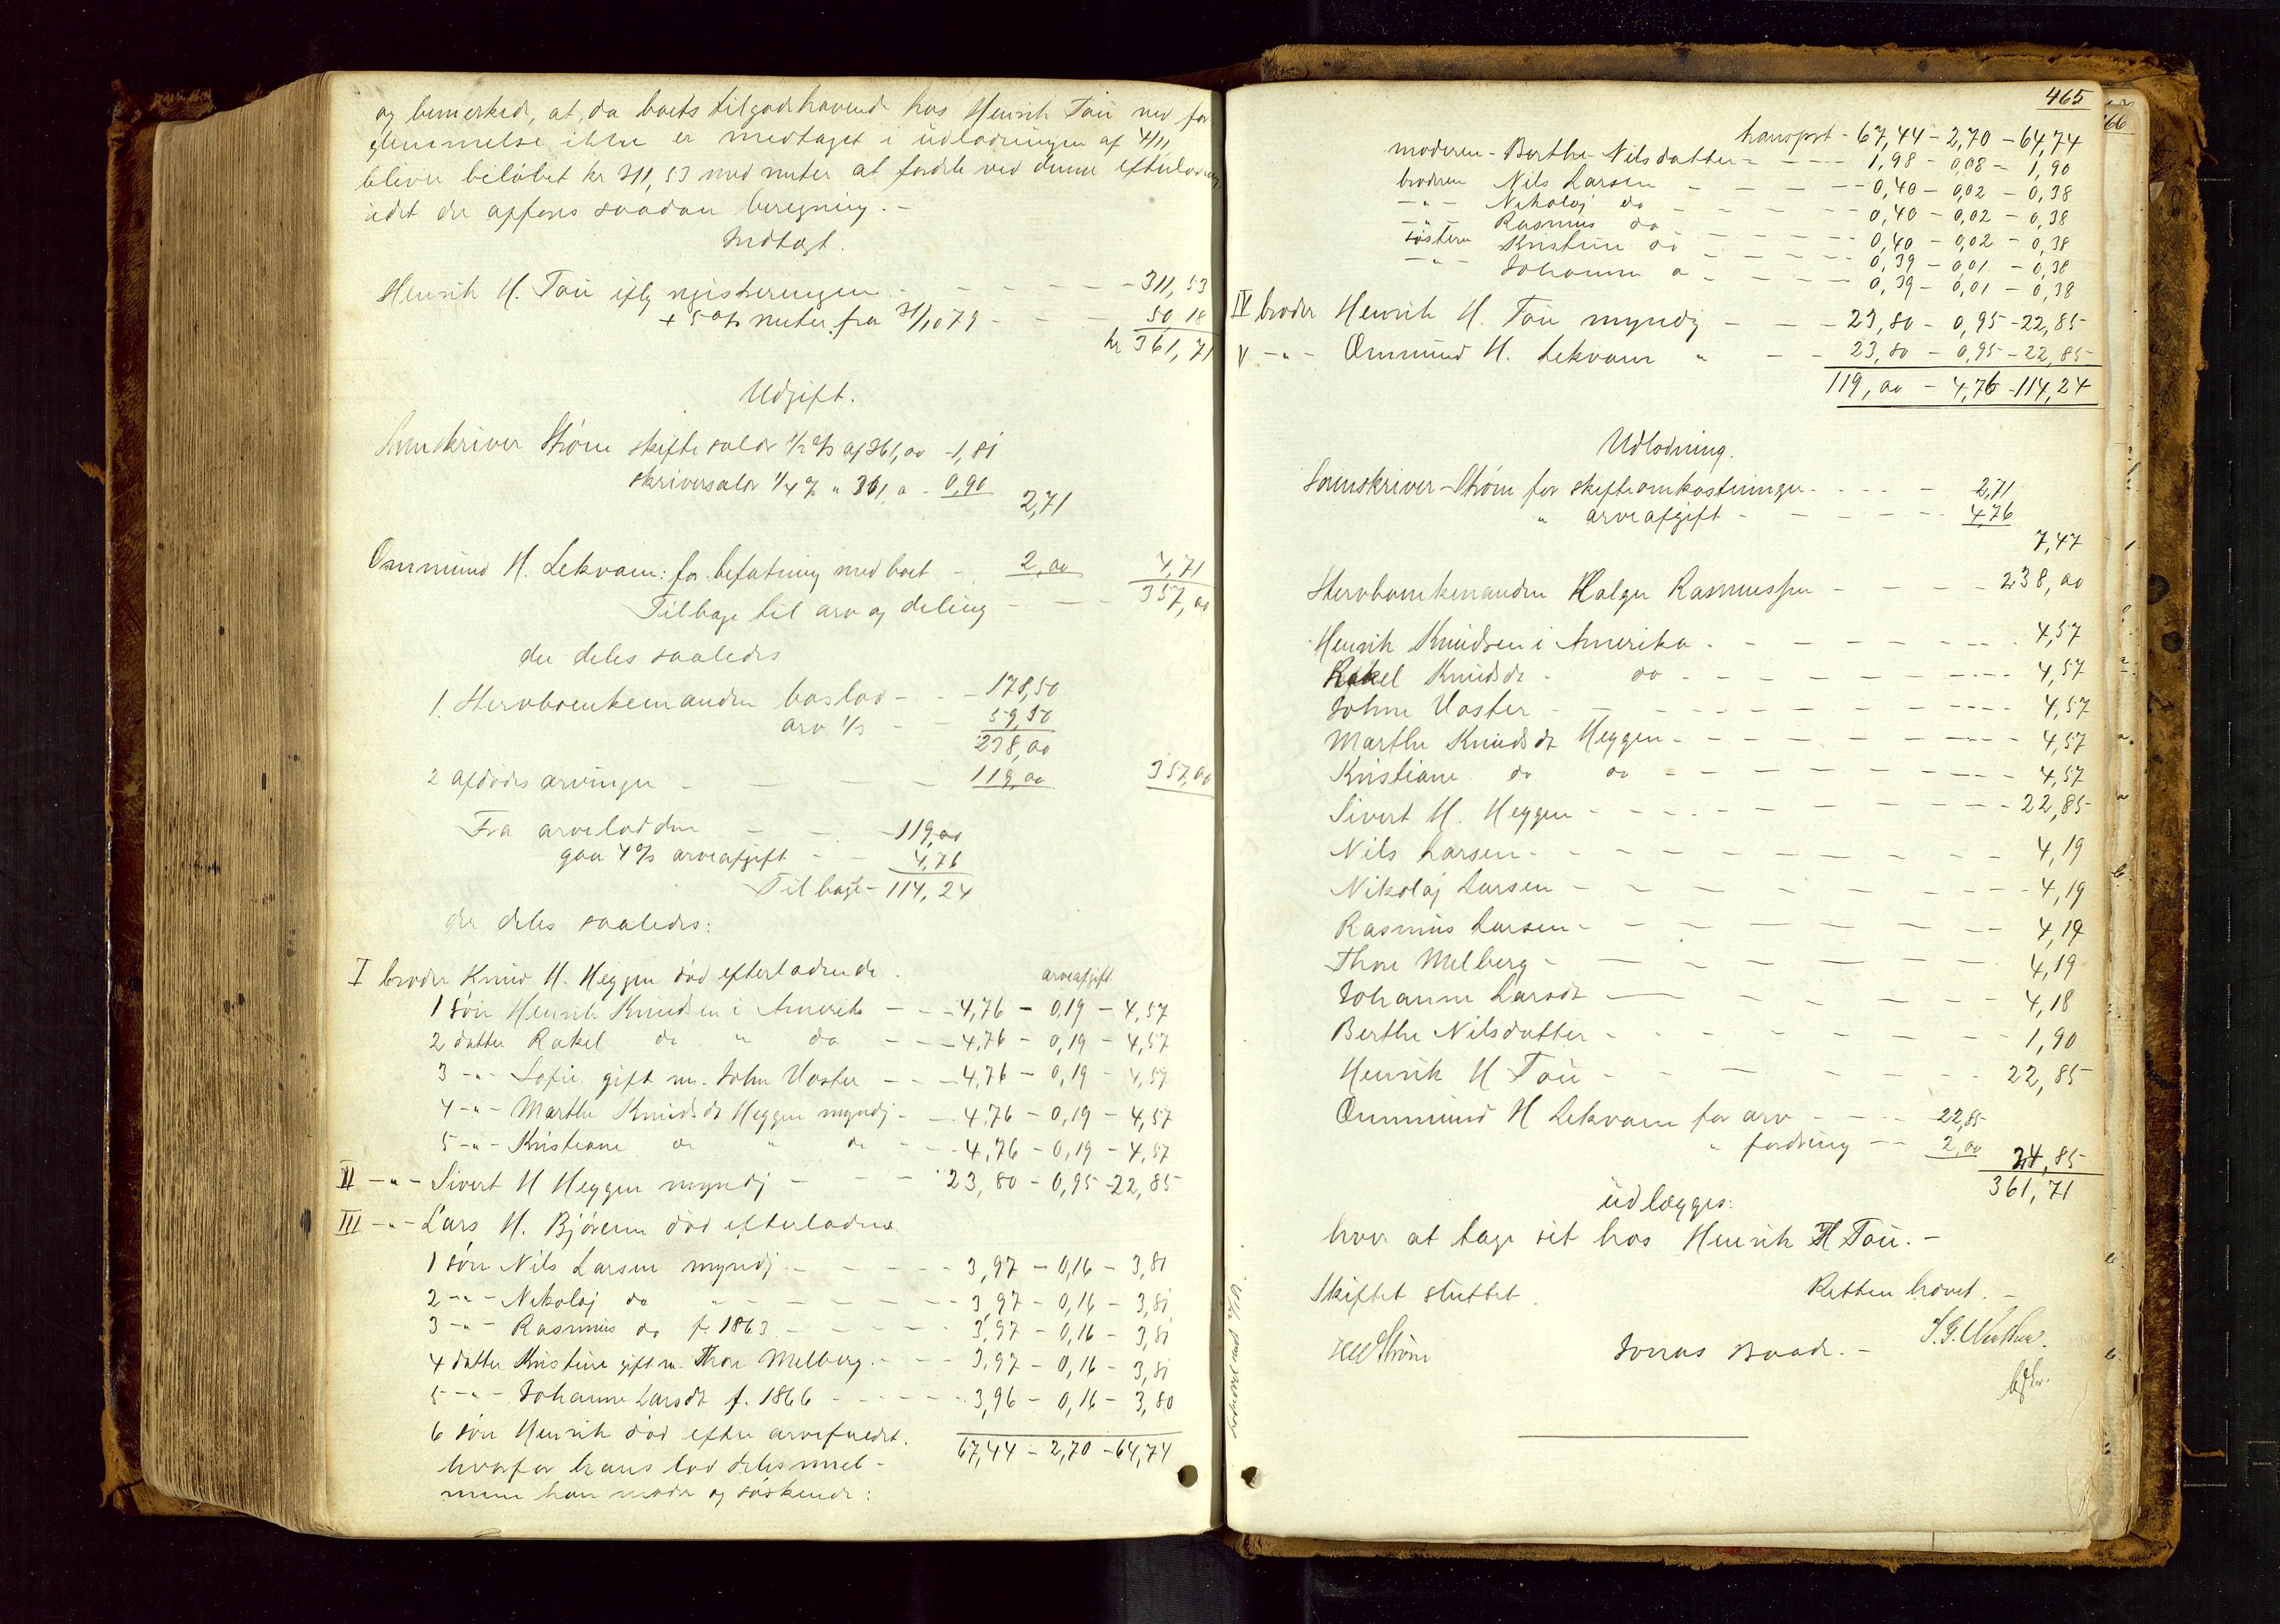 og bemerkede, at, da boets tilgodehavende hos Henrik Tou ved for
glemmelse ikke er medtaget i udlodningen af 4/11
bliver beløbet kr 311,53 med renter at fordele ved denne efterlodning
idet der opføres saadan beregning. -
Indtægt.
Henrik H. Tou iflg registreringen - - - - - - 311,53
+ 5 o/o renter fra 31/10 79 - - - 50 18
kr 361,71
Udgift.
Sorenskriver Strøm skiftesalær 1/2 % af 361,00 - 1,81
skriversalær 1/4 % " 361 " - 0,90
2,71
Ommund H. Lekvam: for befatning med boet - 2,00 4,71
Tilbage til arv og deling - - - 357,00
der deles saaledes
1. Stervboenkemanden boslod - - - 178,50
arv 1/3 - - 59,50
238,00
2 afdødes arvinger - - - - 119,00 357,00
Fra arvelodden - - - 119,00
gaa 4 % arveafgift - - 4,76
Tilbage - 114,24
der deles saaledes:
I broder Knud H. Heggen død efterladende. arveafgift
1 søn Henrik Knudsen i Amerika - - - 4,76 - 0,19 - 4,57
2 datter Rakel do " do - - - 4,76 - 0,19 - 4,57
3 -"- Sofie gift m. John Vaster - - - 4,76 - 0,19 - 4,57
4 -"- Marthe Knudsdt Heggen myndig - - 4,76 - 0,19 - 4,57
5 -"- Kristiane do " do - - - 4,76 - 0,19 - 4,57
II -"- Sivert H Heggen myndig - - - 23,80 - 0,95 - 22,85
III -"- Lars H. Bjørheim død efterladende
1 søn Nils Larsen myndig - - - - - 3,97 - 0,16 - 3,81
2 -"- Nikolaj do " - - - - - - 3,97 - 0,16 - 3,81
3 -"- Rasmus do f. 1863 - - - - - 3,97 - 0,16 - 3,81
4 datter Kristine gift m. Thore Melberg. - - - 3,97 - 0,16 - 3,81
5 -"- Johanne Larsdt f. 1866 - - - - - 3,96 - 0,16 - 3,80
6 søn Henrik død efter arvefaldet. 67,44 - 2,70 - 64,74
hvorfor hans lod deles mel-
lem hans moder og søskende:
465
transport - 67,44 - 2,70 - 64,74
moderen - Berthe Nilsdatter - - - - 1,98 - 0,08 - 1,90
broderen Nils Larsen - - - - - 0,40 - 0,02 - 0,38
-"- Nikolaj do - - - - - 0,40 - 0,02 - 0,38
-"- Rasmus do - - - - - 0,40 - 0,02 - 0,38
søsteren Kristine do - - - - - 0,39 - 0,01 - 0,38
-"- Johanne " - - - - - 0,39 - 0,01 - 0,38
IV broder Henrik H. Tou myndig - - - 23,80 - 0,95 - 22,85
V -"- Ommund H. Lekvam " - - 23,80 - 0,95 - 22,85
119,00 - 4,76 - 114,24
Udlodning.
Sorenskriver Strøm for skifteomkostninger - - - - 2,71
" arveafgift - - - - - - 4,76
7,47
Stervboenkemanden Holger Rasmussen - - - - 238,00
Henrik Knudsen i Amerika - - - - - - - - 4,57
Rakel Knudsdt - do - - - - - - - - - 4,57
John Vaster - - - - - - - - - - - 4,57
Marthe Knudsdt Heggen - - - - - - - - - 4,57
Kristiane do do - - - - - - - - - 4,57
Sivert H. Heggen - - - - - - - - - - 22,85
Nils Larsen - - - - - - - - - - - 4,19
Nikolaj Larsen - - - - - - - - - - 4,19
Rasmus Larsen - - - - - - - - - - 4,19
Thore Melberg - - - - - - - - - - 4,19
Johanne Larsdt - - - - - - - - - 4,18
Berthe Nilsdatter - - - - - - - - - 1,90
Henrik H Tou - - - - - - - - - 22,85
Ommund H Lekvam for arv - - - - 22,85
" fordring - - 2,00
24,85
361,71
udlægges:
hver at tage sit hos Henrik H Tou. -
Skiftet sluttet. Retten hævet. -
Strøm Jonas